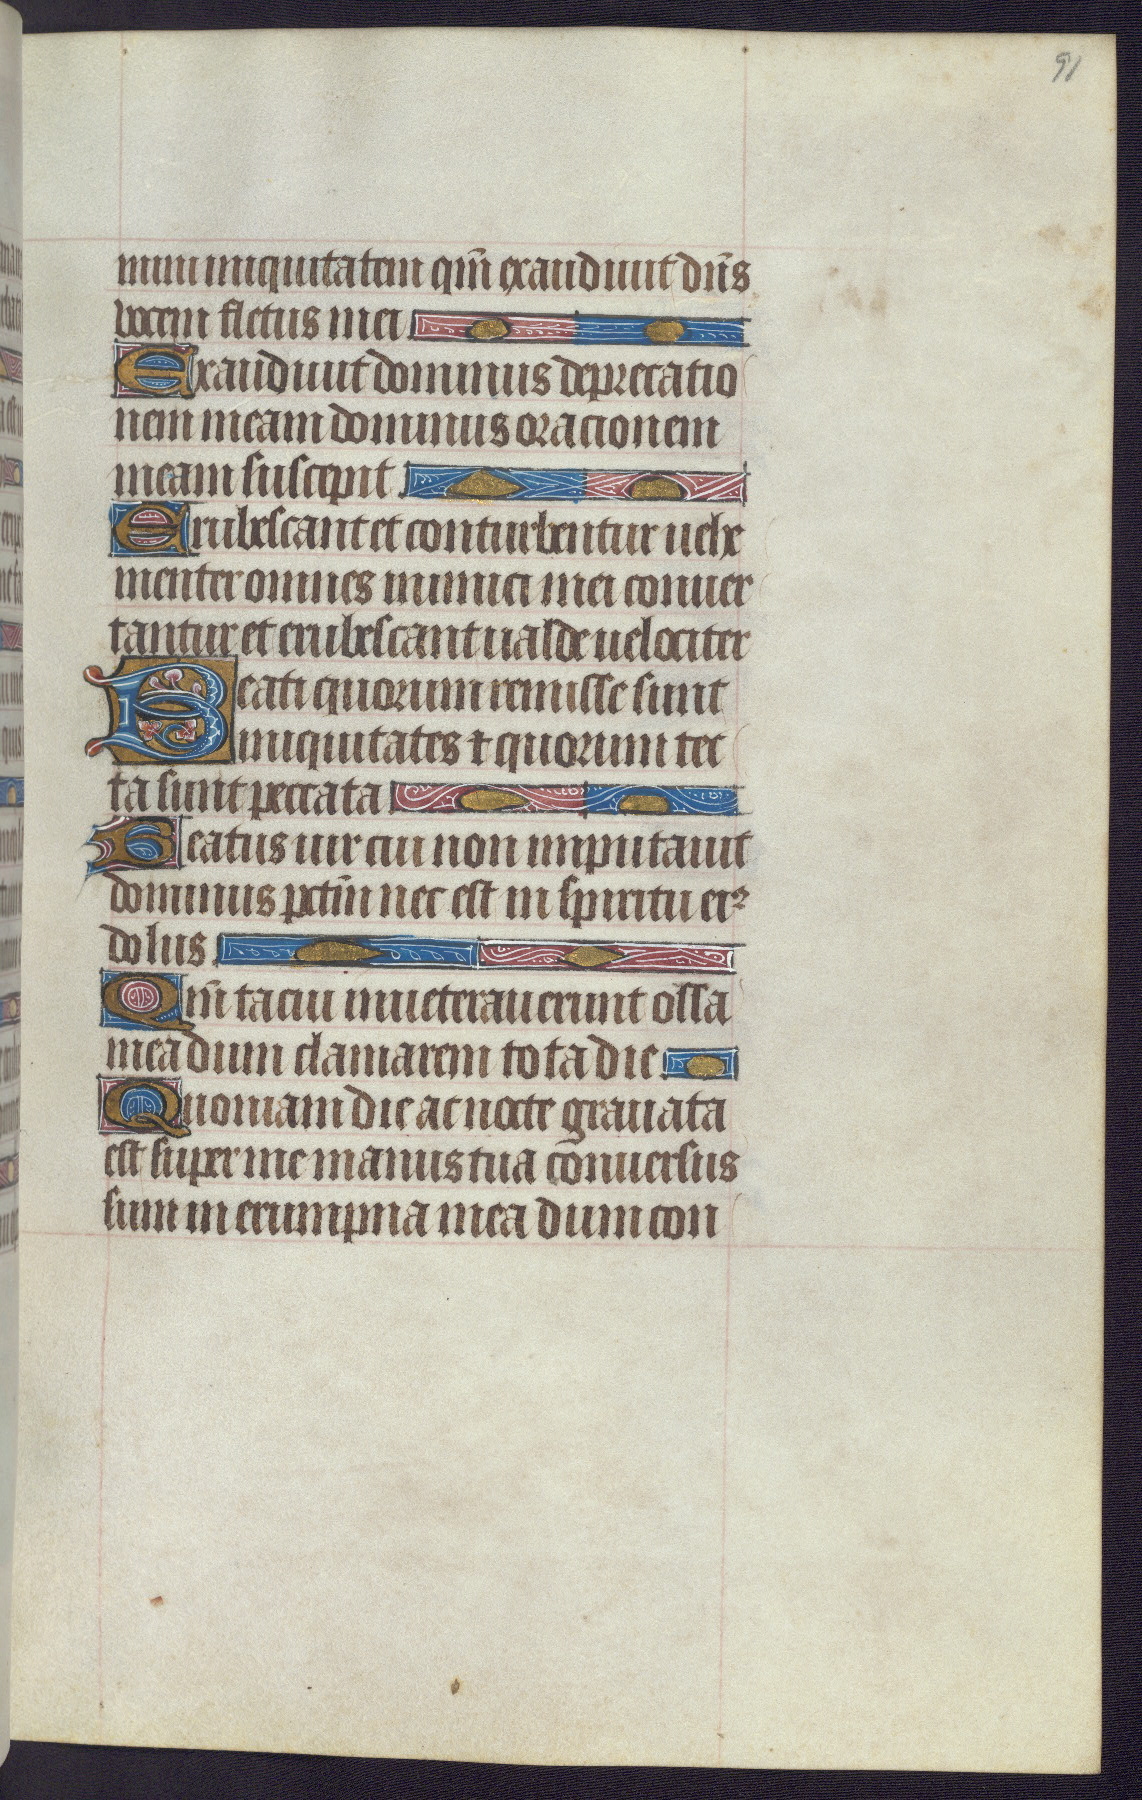 91
mini iniquitatem qm̄ exaudiuit dn̄s
vocem fletus mei
Exaudiuit dominus deprecatio
nem meam dominus oracionem
meam suscepit
Erubescant et conturbentur uehe
menter omnes inimici mei conuer
tantur et erubescant ualde uelociter
Beati quorum remisse sunt
iniquitates ⁊ quorum tec
ta sunt peccata
Beatus uir cui non imputauit
dominus pctm̄ nec est in spiritu eiꝰ
dolus
Qm̄ tacui inueterauerunt ossa
mea dum clamarem tota die
Quoniam die ac nocte grauata
est super me manus tua cōnuersus
sum in erumpna mea dum con